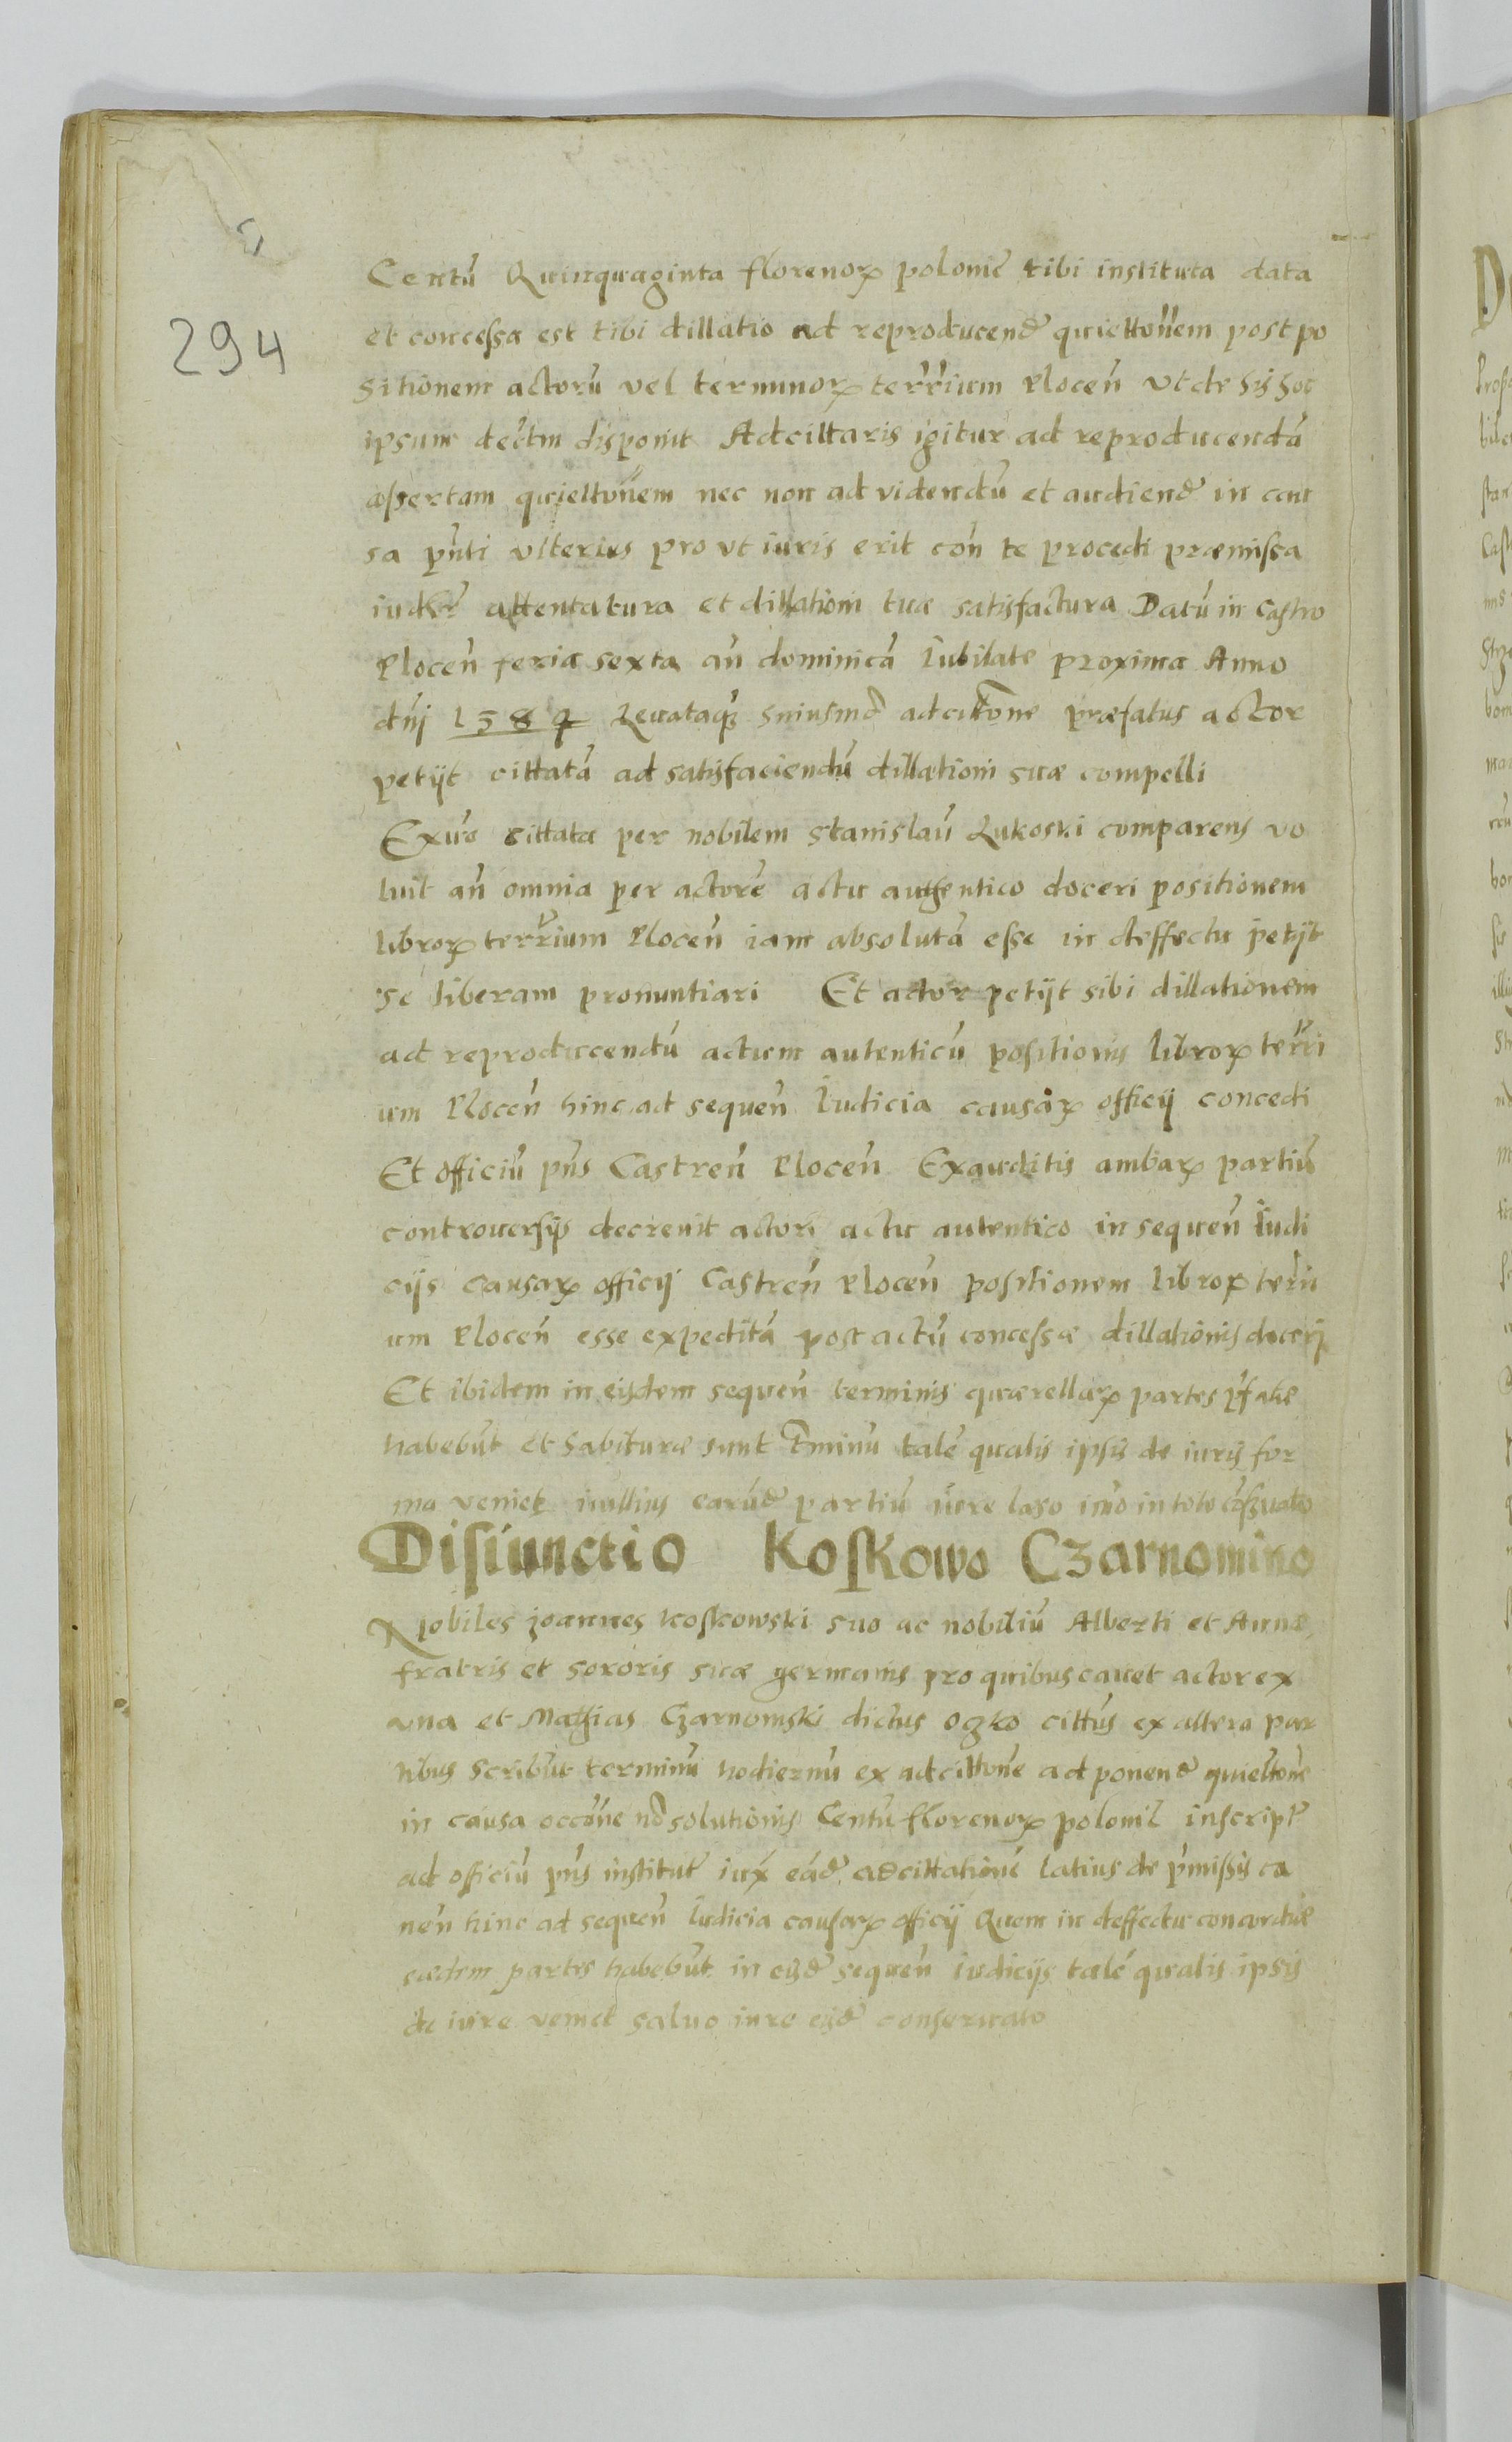 294
Centū Quinquaginta florenoꝝ poloniē tibi instituta data
et concessa est tibi dillatio ad reproducend quiettoñem post po
sitionem actorū vel terminoꝝ terr̃ium Plocen̄ vt de his hoc
ipsum decr̃tm disponit Adcittaris igitur ad reproducendā
assertam quiettoñem nec non ad videndū et audiend in cau
sa pn̄ti vlterius pro vt iuris erit con̄ te procedi præmissa
attentatura et dillationi tuæ satisfactura Datū in Castro
Plocen̄ feria sexta an̄ dominicā Iubilate proxima Anno
dn̄j 1584 Leuataqꝫ huiusmd adcittone præfatus actor
petijt cittatā ad satisfaciendū dillationi suæ compelli
Exuō cittata per nobilem Stanislaū Lukoski comparens vo
luit an̄ omnia per actorē actu authentico doceri positionem
libroꝝ terr̃ium Plocen̄ iam absolutā esse in deffectu petijt
se liberam pronuntiari Et actor petijt sibi dillationem
ad reproducendū actum autenticū positionis libroꝝ terr̃i
um Plocen̄ hinc ad sequen̄ Iudicia causaꝝ officij concedi
Et officiū pn̄s Castren̄ Plocen̄ Exauditis ambaꝝ partiū
controuersijs decreuit actori actu autentico in sequen̄ Iudi
cijs causaꝝ officij Castren̄ Plocen̄ positionem libroꝝ terri
um Plocen̄ esse expeditā post actū concessæ dillationis docerj
Et ibidem in eisdem sequen̄ terminis quærellaꝝ partes pf̄atæ
habebūt et habituræ sunt tm̄inū talē qualis ipsis de iuris for
ma veniet nullius earūd partiū iure læso imō in toto cōseruato
Disiunctio Koskowo Czarnomino
Nobiles Joannes Koskowski suo ac nobiliū Alberti et Annæ
fratris et sororis suæ germanis pro quibus cauet actor ex
vna et Mathias Czarnomski dictus Ogko cittūs ex altera par
tibus scribūt terminū hodiernū ex adcittone ad ponend quiettonē
in causa occōne nō solutionis Centū florenoꝝ polonil inscript
ad officiū pn̄s institut iux eād adcittationē latius de pm̄issis ca
nen̄ hinc ad sequen̄ Iudicia causaꝝ officij Quem in deffectu concordiæ
eædem partes habebūt in eisd sequen̄ iudicijs talē qualis ipsis
de iure veniet saluo iure eisd conseruato